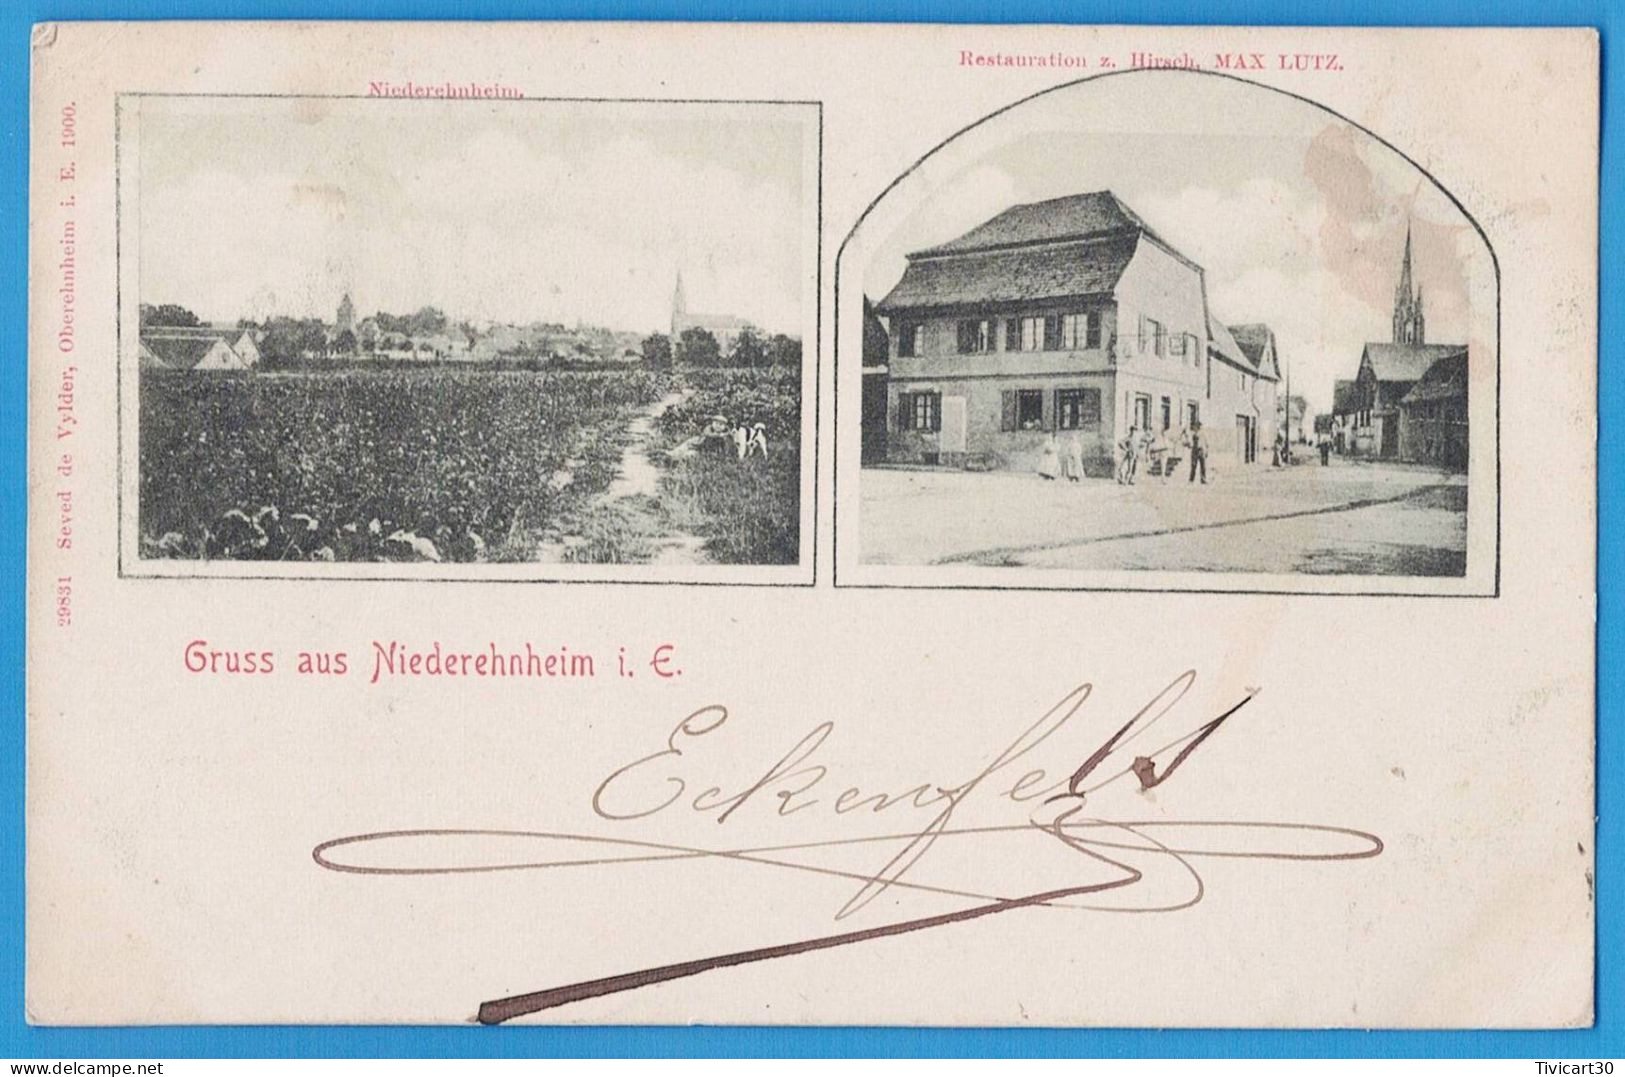 Restauration z. Hirsch, MAX LUTZ.
Niederehnheim.
29831 Seved de Vylder, Oberehnheim i. E. 1900.
Gruss aus Niederehnheim i. E.
Eckenfels
delcampe.net
Tivicart30